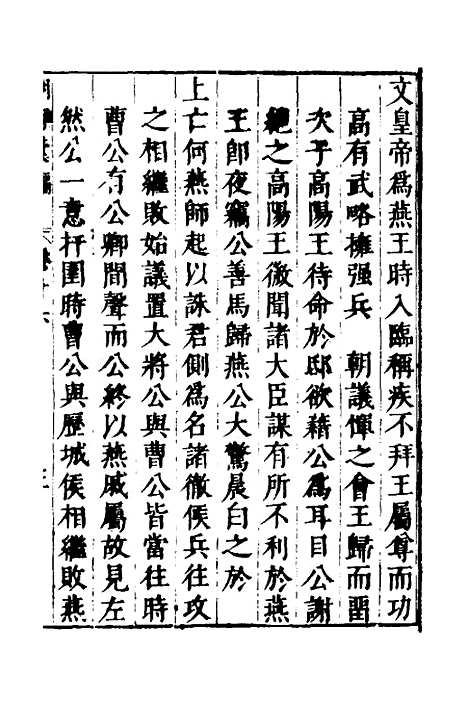 文皇帝爲燕王時入臨稱疾不拜王屬尊而功
高有武略擁强兵　朝議憚之會王歸而畱
次子高陽王待命於邸欲藉公爲耳目公謝
絶之高陽王微聞諸大臣謀有所不利於燕
王卽夜竊公善馬歸燕公大驚晨白之於
上亡何燕師起以誅君側爲名諸徹候兵往攻
之相繼敗始議置大將公與曹公皆當往時
曹公有公卿間聲而公終以燕戚屬故見左
然公一意扞圉時曹公與歷城侯相繼敗燕